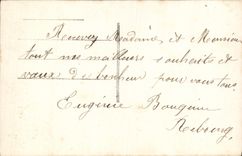 Recevez Madame, et Monsieur
tout nos meilleurs souhaits et
vœux de bonheur pour vous tous
Eugénie Bouguin